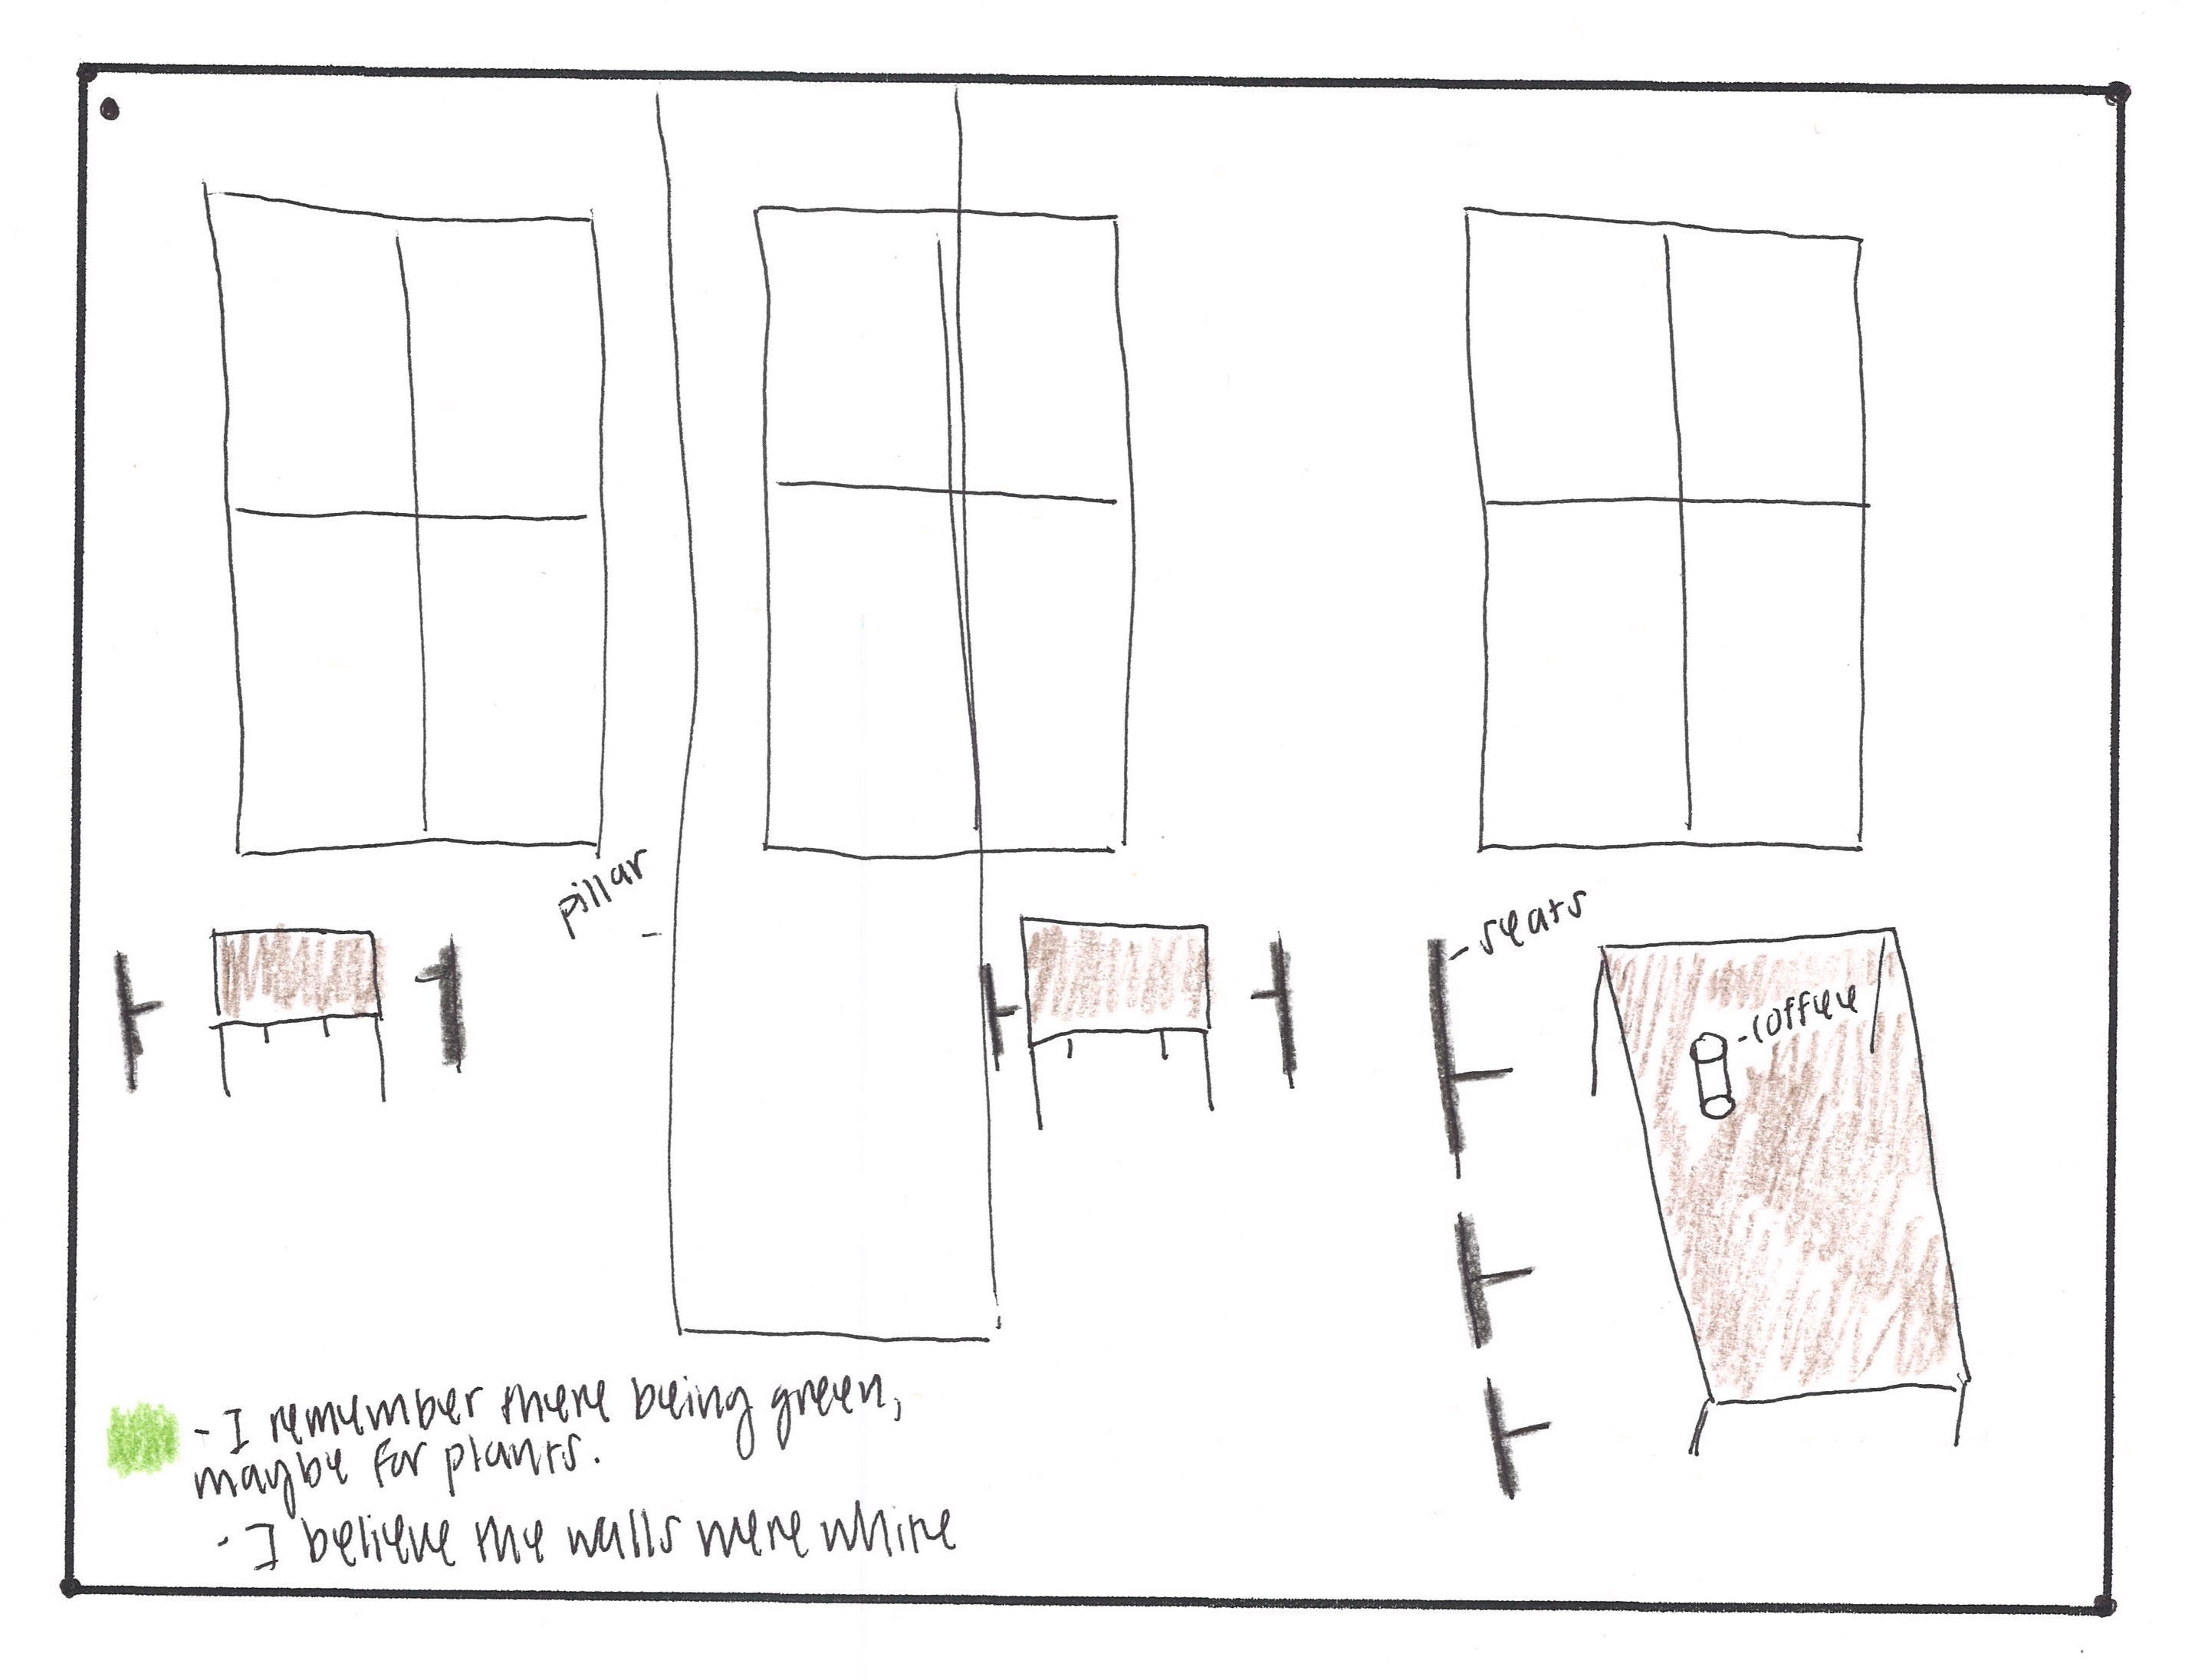 pillar
- seats
- coffee
- I remember there being green,
maybe for plants.
- I believe the walls were white